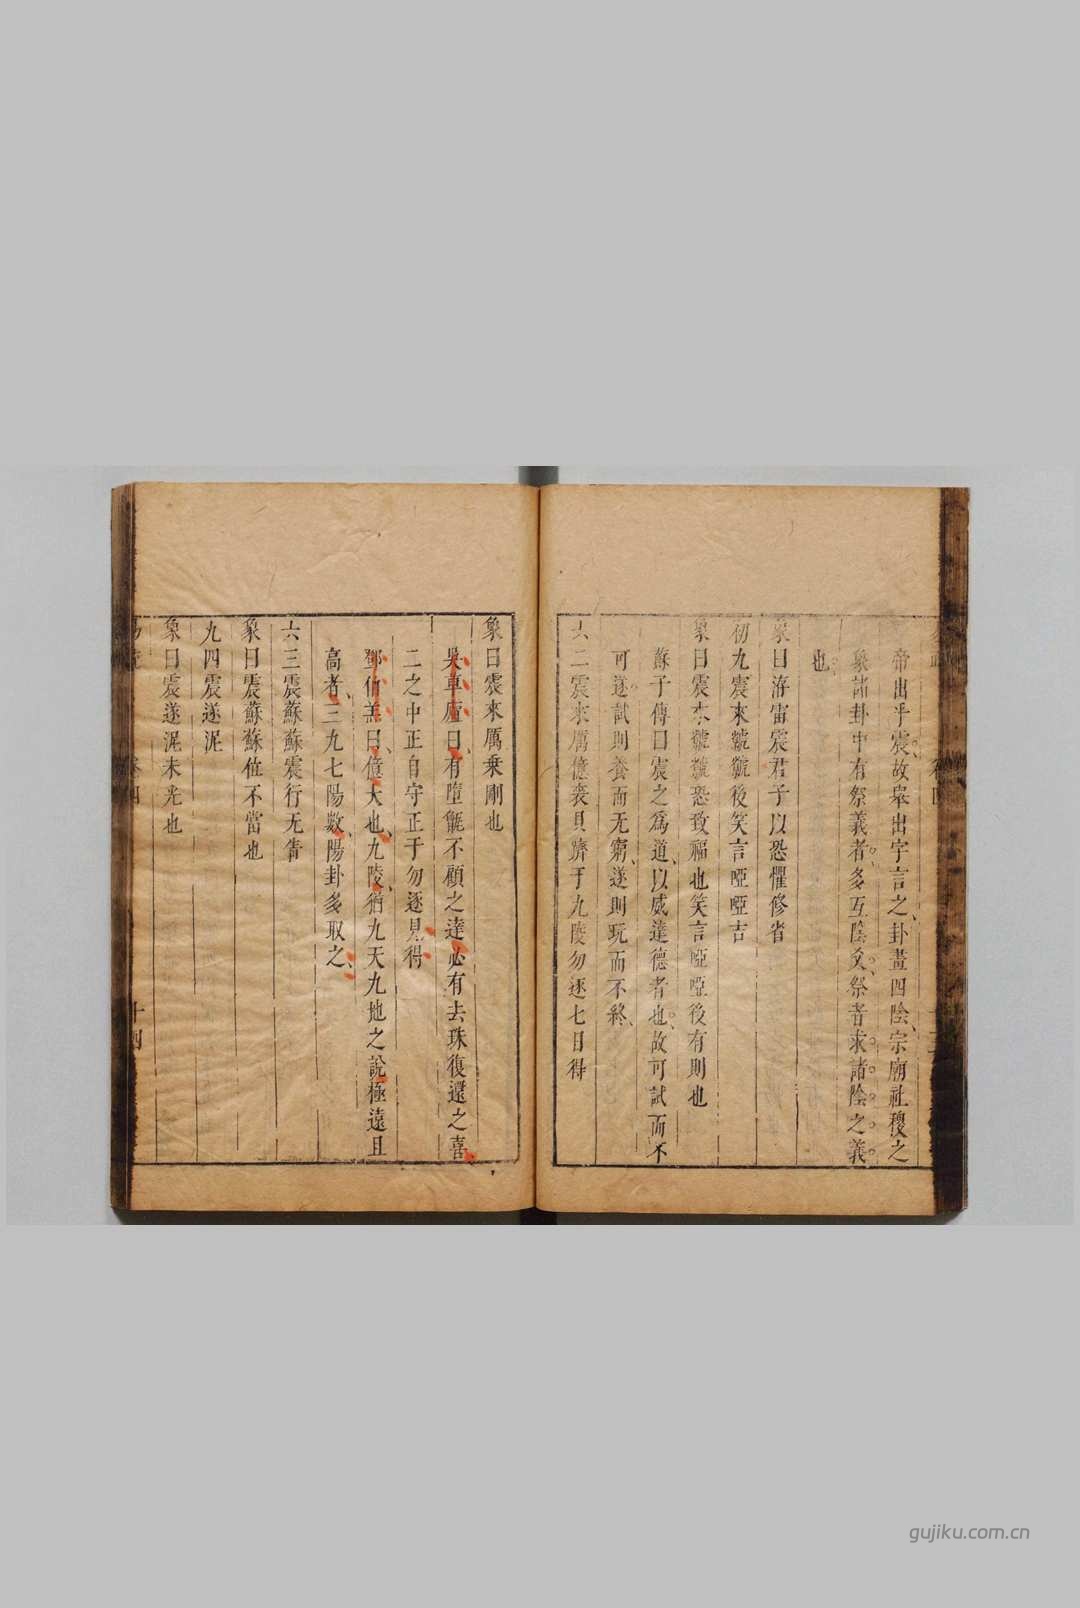 帝出乎震故舉出字言之卦畫四陰宗廟社稷之
象諸卦中有祭義者多互陰爻祭者求諸陰之義
也
象曰洊雷震君子以恐懼修省
初九震來虩虩後笑言啞啞吉
象曰震來虩虩恐致福也笑言啞啞後有則也
蘇子傳曰震之爲道以威達德者也故可試而不
可遂試則養而无窮遂則玩而不終
六二震來厲億喪貝躋于九陵勿逐七日得
象曰震來厲乗剛也
吳草廬曰有墮甑不顧之達必有去珠復還之喜
二之中正自守正于勿逐見得
鄧伯羔曰億大也九陵猶九天九地之說極遠且
高者三九七陽數陽卦多取之
六三震蘇蘇震行无眚
象曰震蘇蘇位不當也
九四震遂泥
象曰震遂泥未光也
卷四
十四
gujiku.com.cn